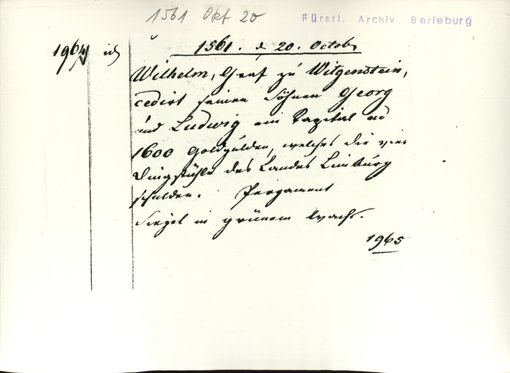 1561 Okt 20
Fürstl. Archiv Berleburg
1561. d 20. October
Wilhelm, Graf zu Witgenstein,
cedirt seinen Söhnen Georg
und Ludwig ein Kapital ad
1600 Goldgulden, welches die vier
Dingstühle des Landes Limburg
schulden. Pergament
Siegel in grünem Wachs.
1965